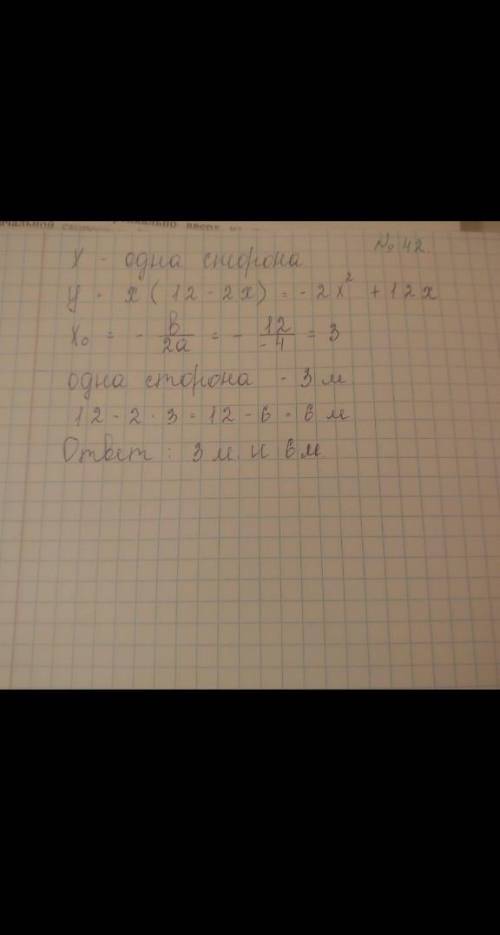 № 42
x - одна сторона
y = x ( 12 - 2x ) = - 2x² + 12x
x₀ = - в/2a = - 12/-4 = 3
одна сторона - 3 м
12 - 2 · 3 = 12 - 6 = 6 м
Ответ : 3 м и 6 м